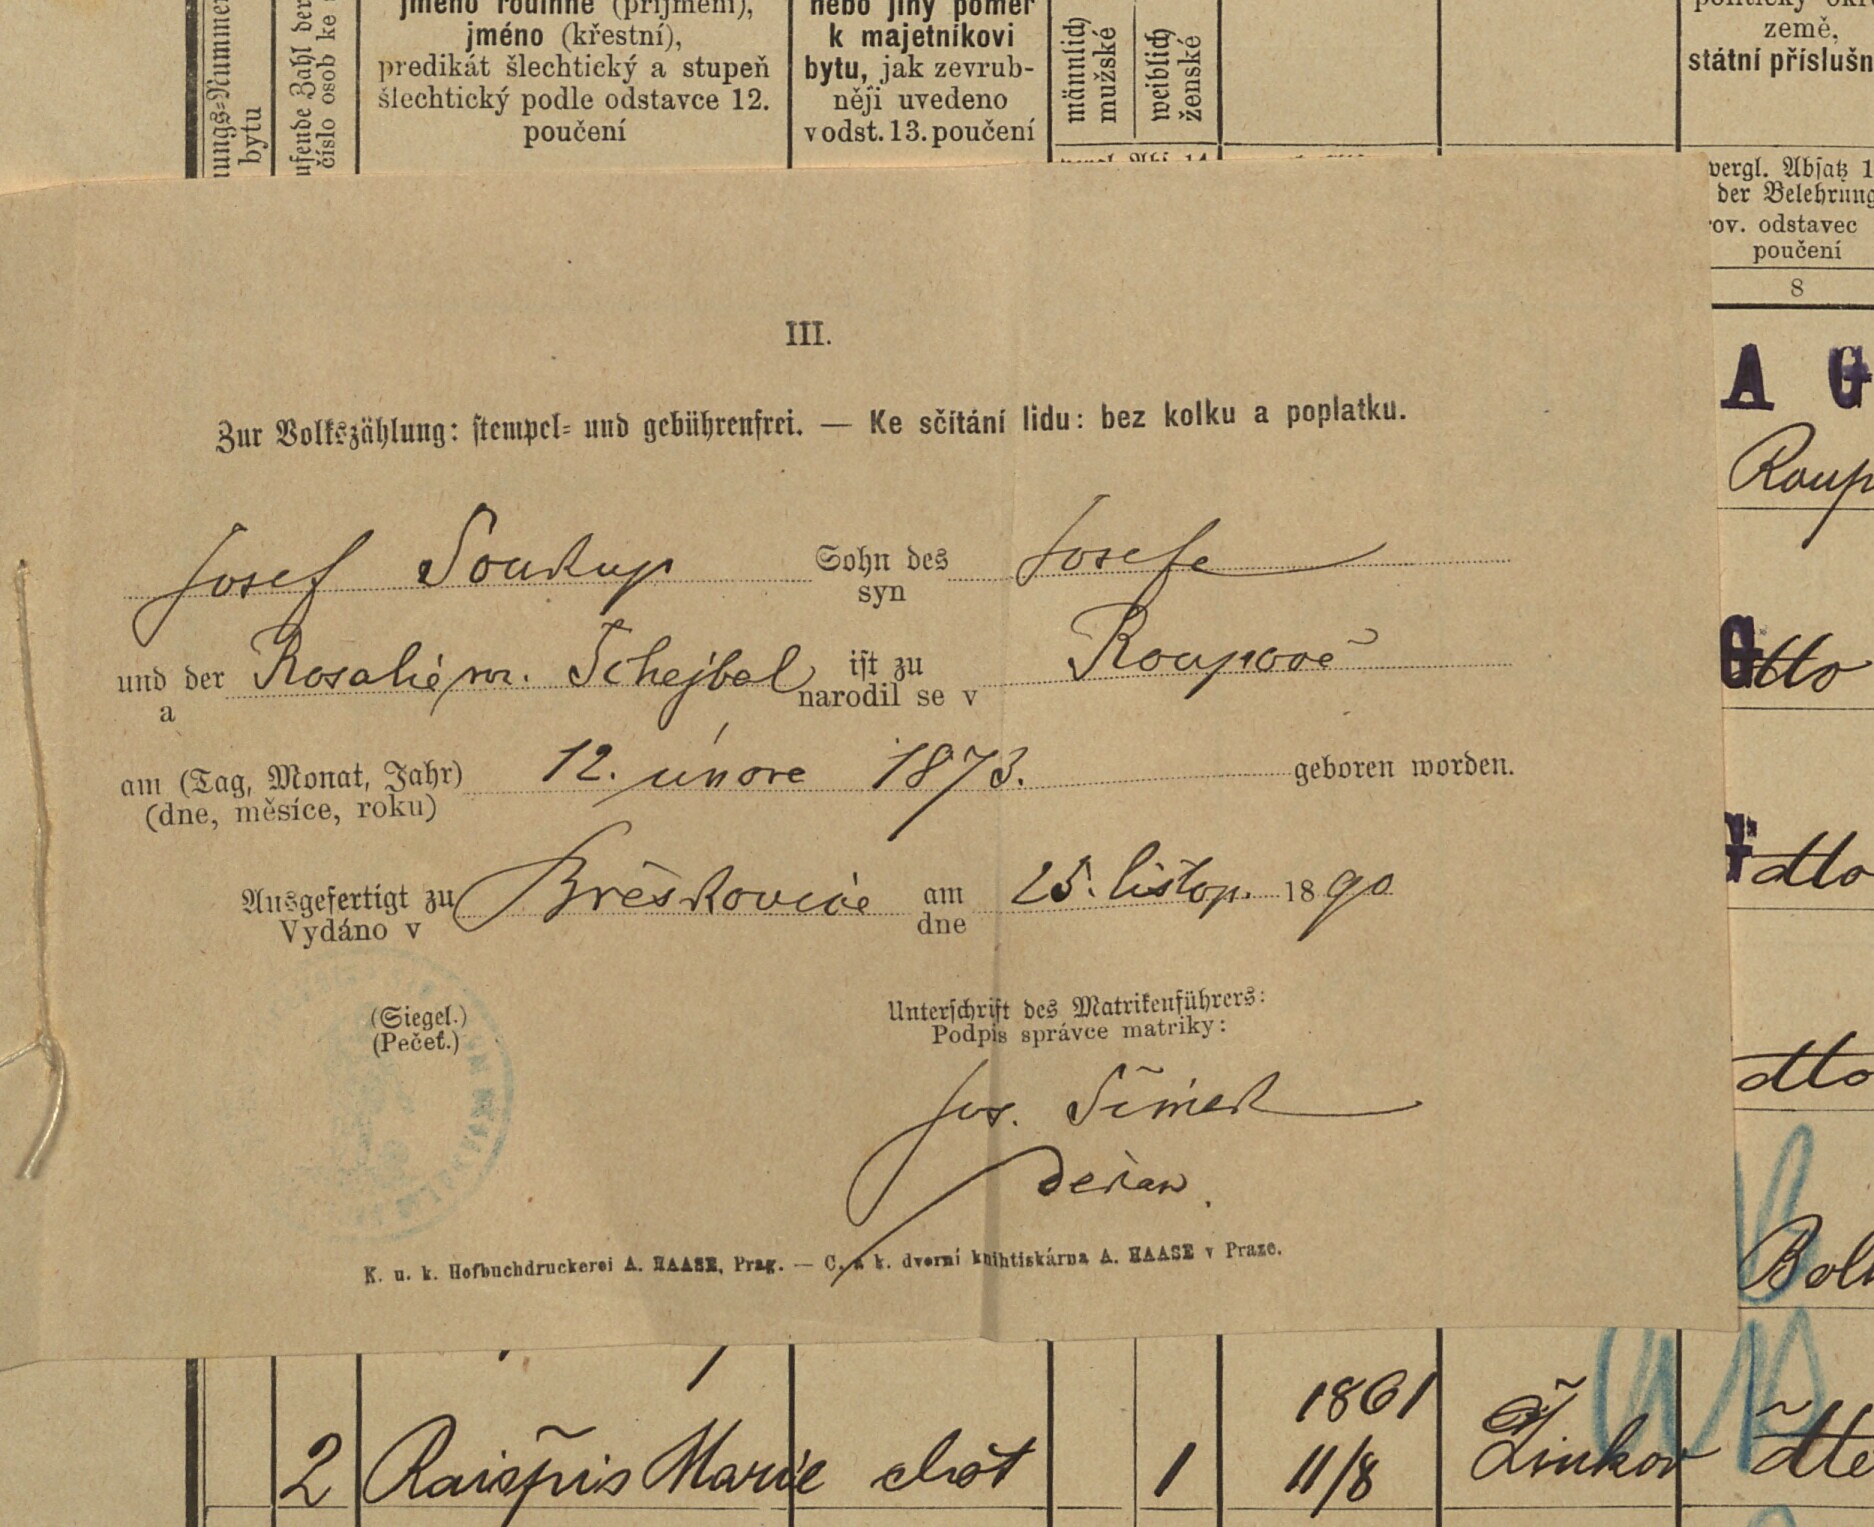 jméno rodinné (příjmení),
jméno (křestní),
predikát šlechtický a stupeň
šlechtický podle odstavce 12.
poučení
nebo jiný poměr
k majetníkovi
bytu, jak zevrub-
něji uvedeno
v odst. 13. poučení
männlich
mužské
weiblich
ženské
bytu
číslo osob ke
země,
státní příslušn
vergl. Absatz 1
der Belehrung
rov. odstavec
poučení
8
A G
Roup
III.
Zur Volkszählung: stempel- und gebührenfrei. — Ke sčítání lidu: bez kolku a poplatku.
Josef Soukup Sohn des Josefa
syn
und der Rosalie r. Schejbal ist zu Roupově
a narodil se v
G dto
am (Tag, Monat, Jahr) 12. února 1873. geboren worden.
(dne, měsíce, roku)
dto
Ausgefertigt zu Břěskovice am 25. listop. 1890
Vydáno v dne
(Siegel.)
(Pečeť.)
Unterschrift des Matrikenführers:
Podpis správce matriky:
dto
Jos. Šimek
děkan.
K. u. k. Hofbuchdruckerei A. HAASE, Prag. — C. a k. dvorní knihtiskárna A. HAASE v Praze.
2 Raišpis Marie choť 1 1861 11/8 Žinkov dto